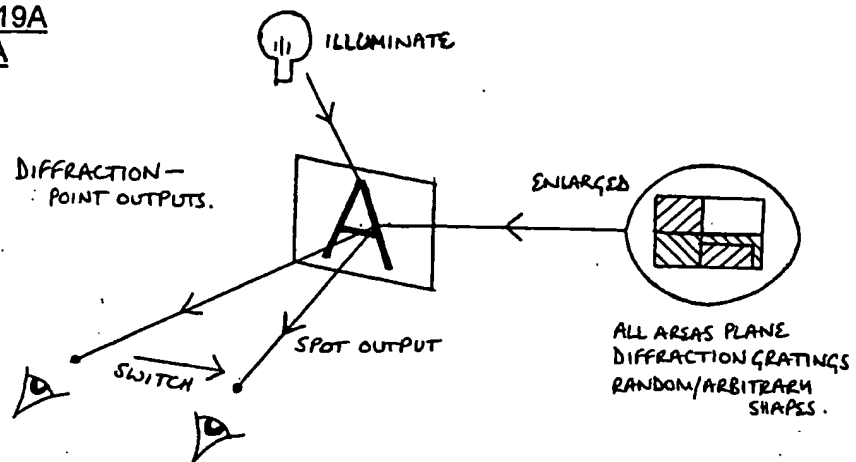 19A
A
ILLUMINATE
DIFFRACTION —
POINT OUTPUTS.
ENLARGED
A
SPOT OUTPUT
SWITCH
ALL AREAS PLANE
DIFFRACTION GRATINGS
RANDOM/ARBITRARY
SHAPES.